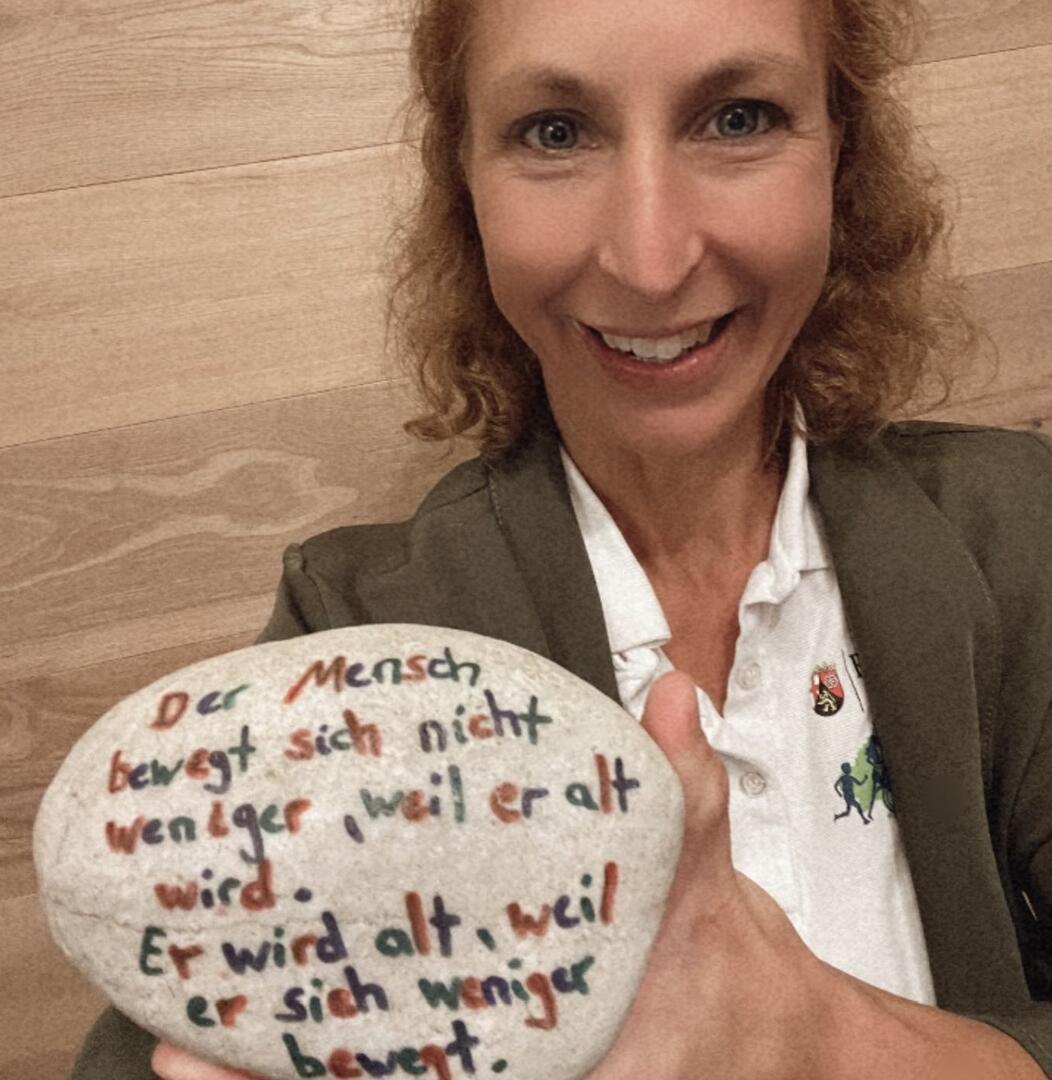 Der Mensch
bewegt sich nicht
weniger, weil er alt
wird.
Er wird alt, weil
er sich weniger
bewegt.